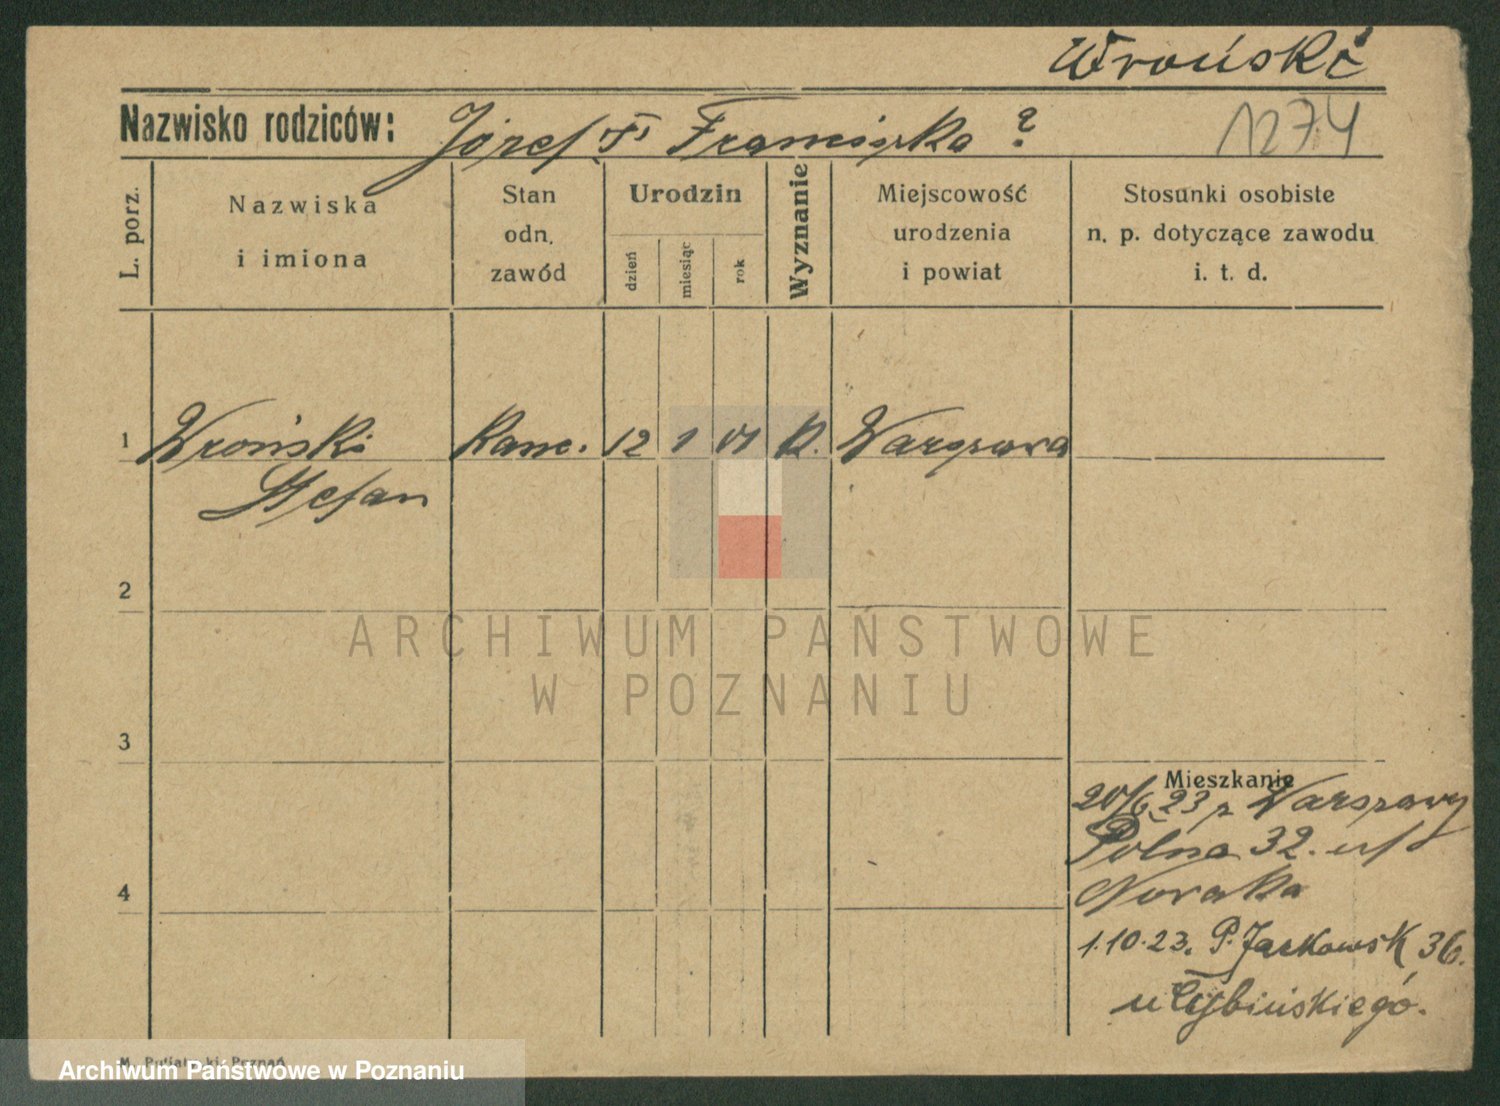 Wroński
Nazwisko rodziców: Józef i Franciszka ?
1274
L. porz.
Nazwiska
i imiona
Stan
odn.
zawód
Urodzin
dzień
miesiąc
rok
Wyznanie
Miejscowość
urodzenia
i powiat
Stosunki osobiste
n. p. dotyczące zawodu
i. t. d.
1 Wroński Kanc. 12 1 01 k. Warszawa
Stefan
2
ARCHIWUM PAŃSTWOWE
W POZNANIU
3
Mieszkanie
20/6 23 z Warszawy
Polna 32.
Nowaka
4
1.10.23. P. Jackowsk 36.
u Cybińskiego.
Poznań
Archiwum Państwowe w Poznaniu